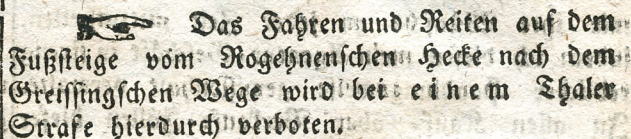 Das Fahren und Reiten auf dem
Fußsteige vom Rogehnenschen Hecke nach dem
Greissingschen Wege wird bei einem Thaler
Strafe hierdurch verboten.